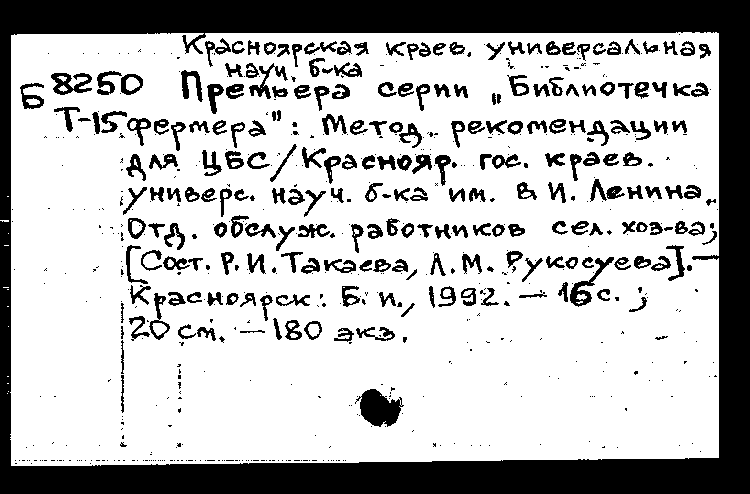 Красноярская краев. универсальная
науч. б-ка
Б 8250 Премьера серии „Библиотечка
Т-15 фермера": Метод. рекомендации
для ЦБС/Краснояр. гос. краев.
универс. науч. б-ка им. В. И. Ленина,
Отд. обслуж. работников сел. хоз-ва;
[Сост. Р. И. Такаева, Л. М. Рукосуева]. —
Красноярск: Б. и., 1992. — 16 с. ;
20 см. — 180 экз.